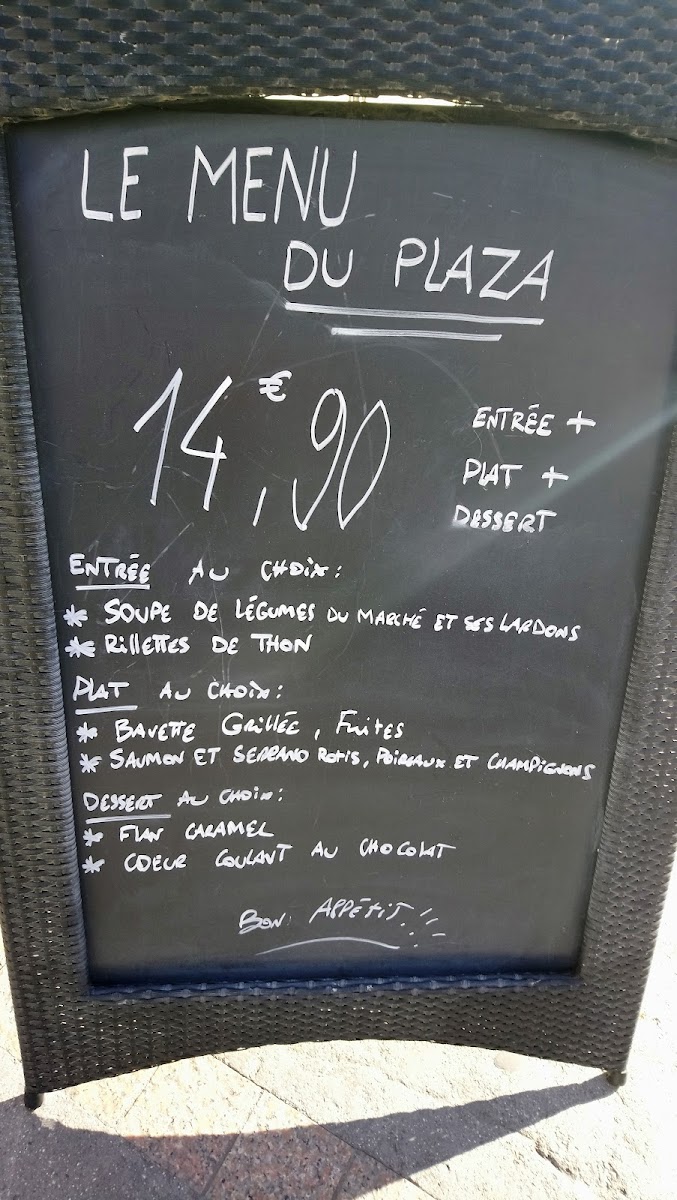 LE MENU
DU PLAZA
14€,90
ENTRÉE +
PLAT +
DESSERT
ENTRÉE AU CHOIX :
* SOUPE DE LÉGUMES DU MARCHÉ ET SES LARDONS
* RILLETTES DE THON
PLAT AU CHOIX :
* BAVETTE GRILLÉE, FRITES
* SAUMON ET SERRANO ROTIS, POIREAUX ET CHAMPIGNONS
DESSERT AU CHOIX :
* FLAN CARAMEL
* COEUR COULANT AU CHOCOLAT
BON APPÉTIT !!!